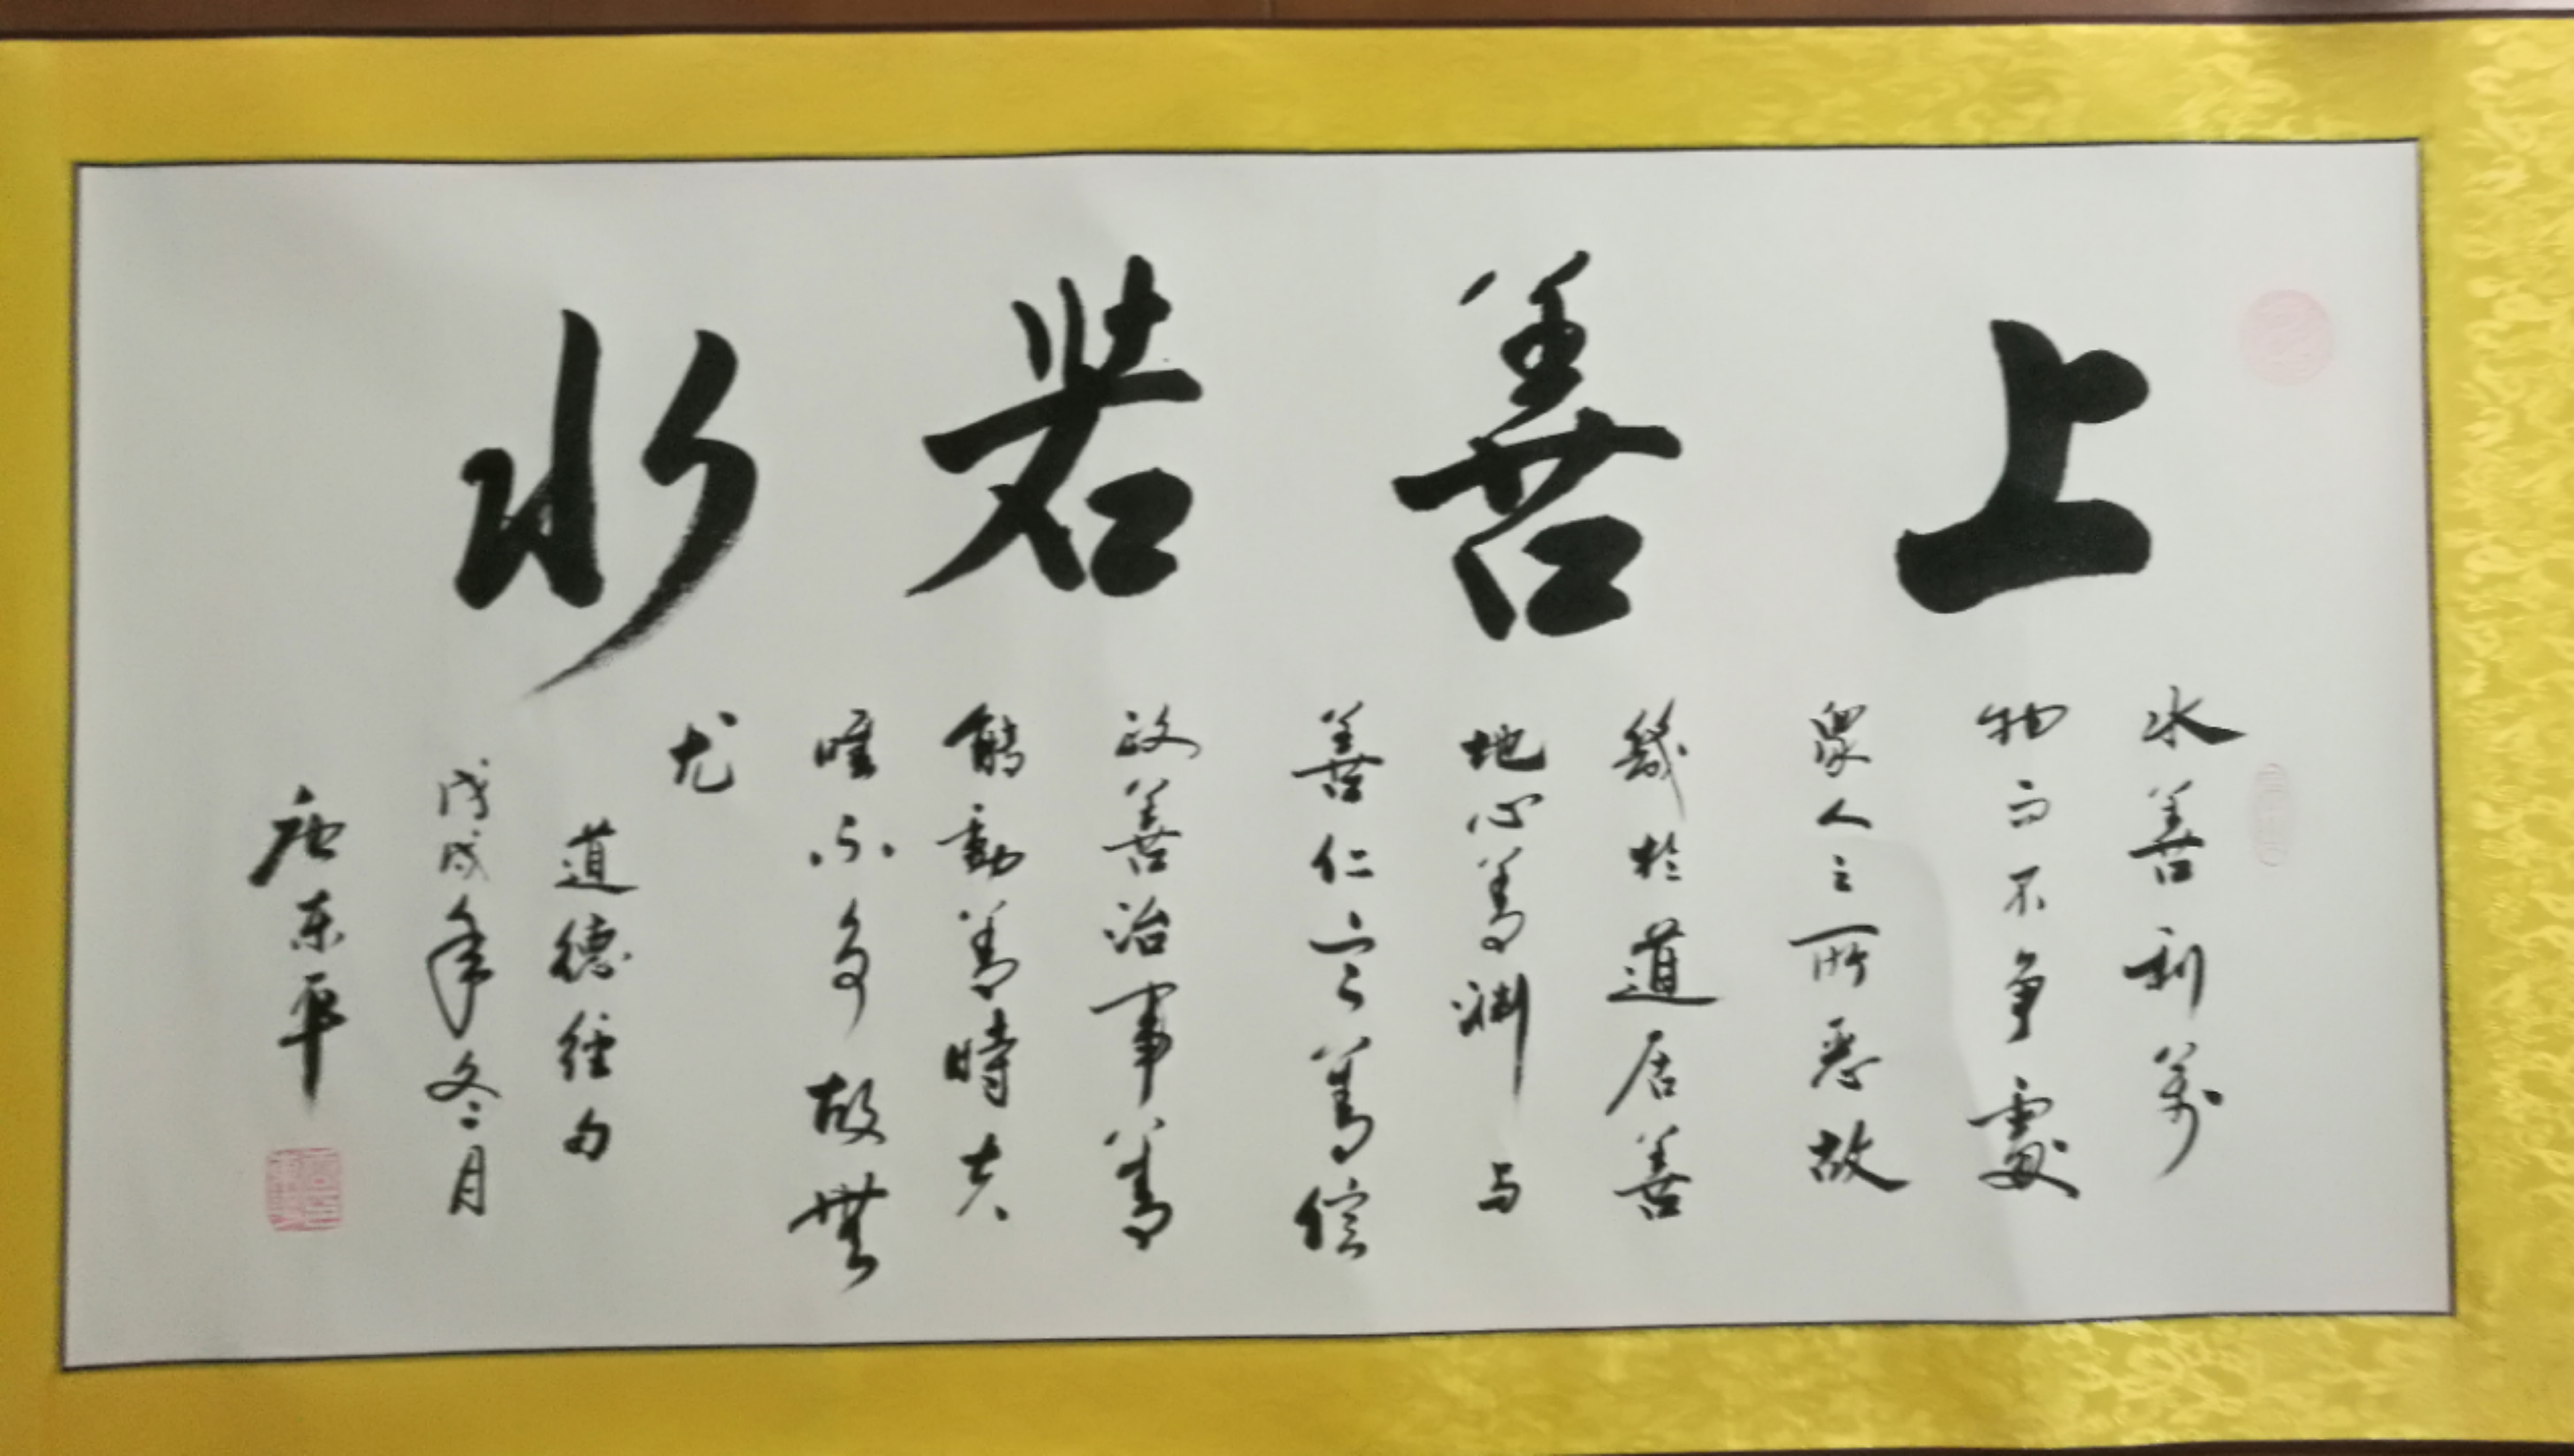 上善若水
水善利萬
物而不争處
眾人之所惡故
幾於道居善
地心善渊与
善仁言善信
政善治事善
能動善時夫
唯不争故無
尤
道德经句
戊戌年冬月
唐东平